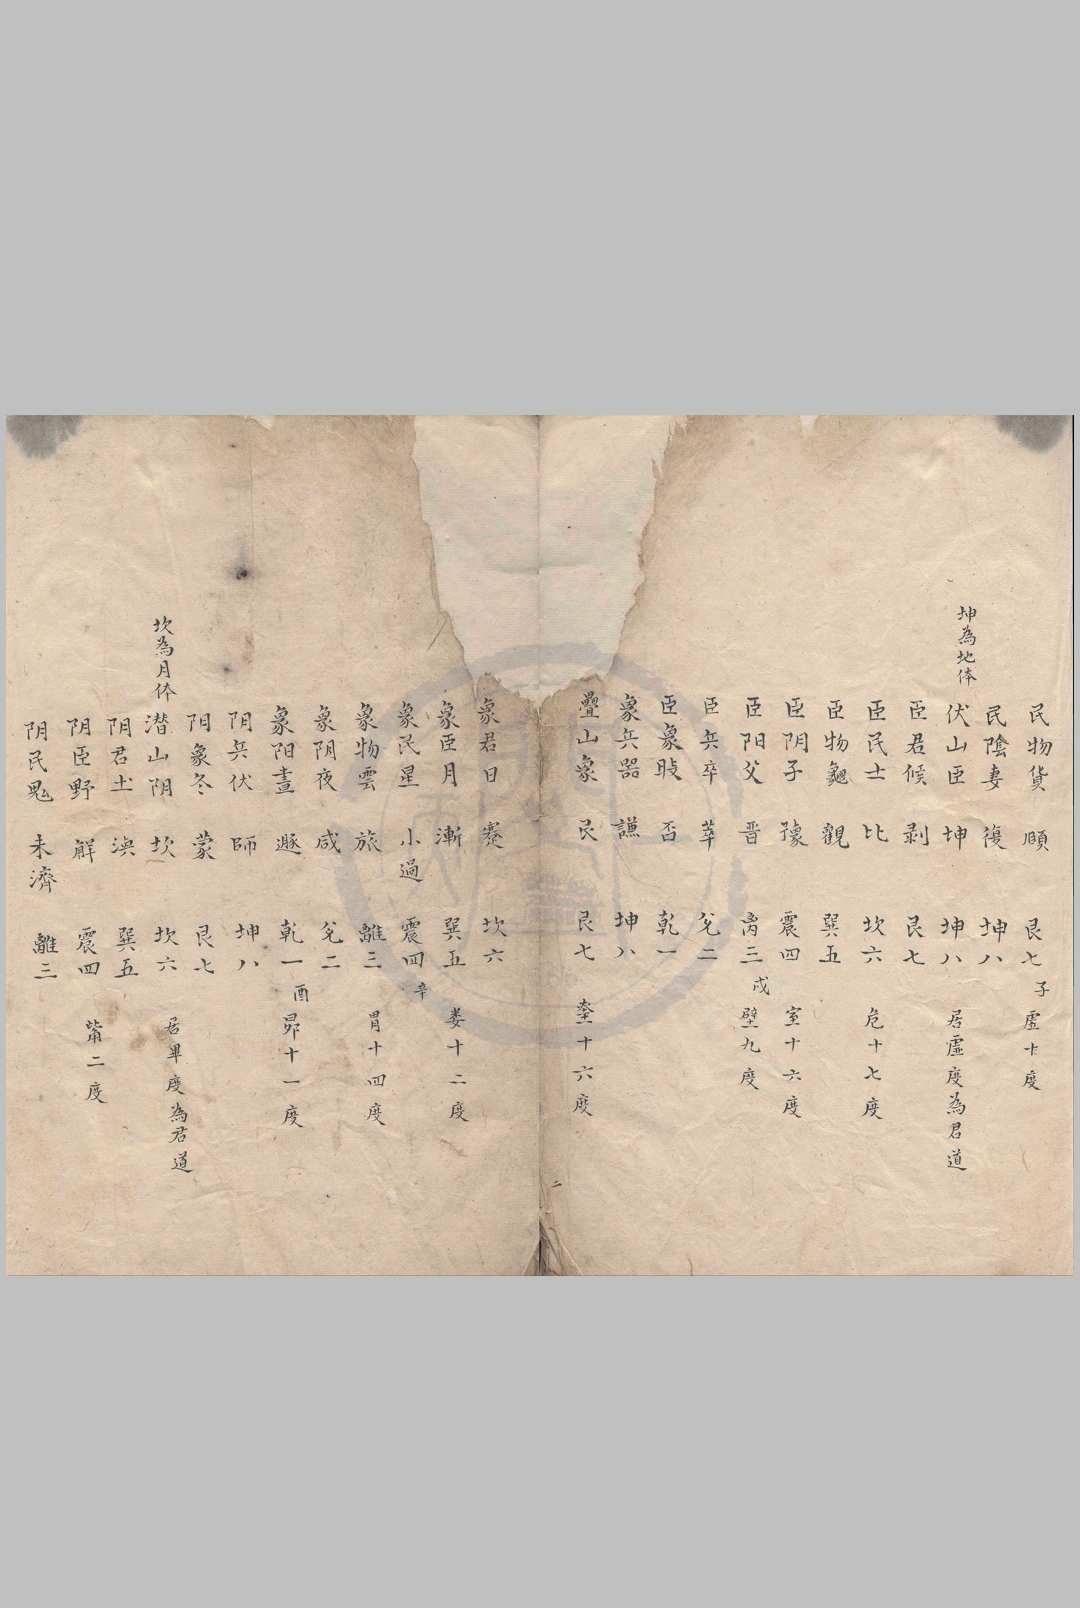 民物貨 頤 艮七 子 虛十度
民陰妻 復 坤八
坤為地体 伏山臣 坤 坤八 居虛度為君道
臣君候 剥 艮七
臣民士 比 坎六 危十七度
臣物龜 觀 巽五
臣阴子 豫 震四 室十六度
臣阳父 晋 离三 戌 壁九度
臣兵卒 萃 兌二
臣象 否 乾一
象兵器 謙 坤八
疊山象 艮 艮七 奎十六度
象君日 蹇 坎六
象臣月 漸 巽五 娄十二度
象民星 小過 震四 辛
象物雲 旅 離三 胃十四度
象阴夜 咸 兌二
象阳晝 遯 乾一 酉 昴十一度
阴兵伏 師 坤八
阴象冬 蒙 艮七
坎為月体 潛山阴 坎 坎六 居畢度為君道
阴君土 渙 巽五
阴臣野 解 震四 觜二度
阴民鬼 未濟 離三
二